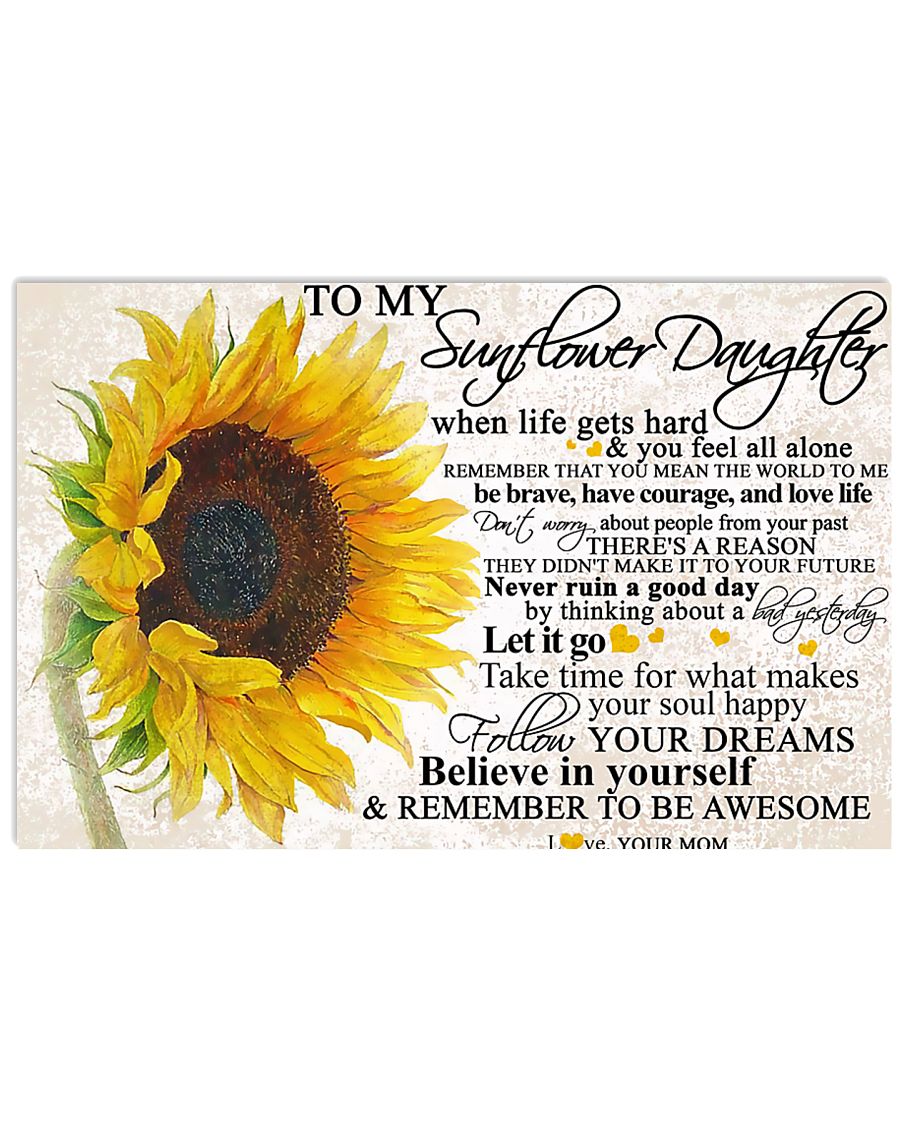 TO MY
Sunflower Daughter
when life gets hard
& you feel all alone
REMEMBER THAT YOU MEAN THE WORLD TO ME
be brave, have courage, and love life
Don't worry about people from your past
THERE'S A REASON
THEY DIDN'T MAKE IT TO YOUR FUTURE
Never ruin a good day
by thinking about a bad yesterday
Let it go
Take time for what makes
your soul happy
Follow YOUR DREAMS
Believe in yourself
& REMEMBER TO BE AWESOME
Love, YOUR MOM